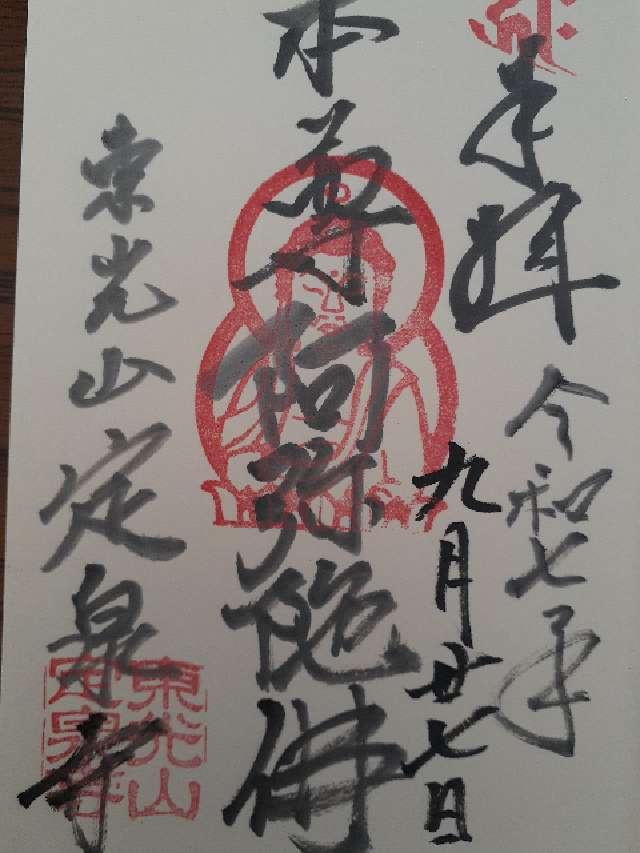 奉拝
令和七年
九月廿七日
本尊阿弥陀佛
東光山定泉寺
東光山
定泉寺